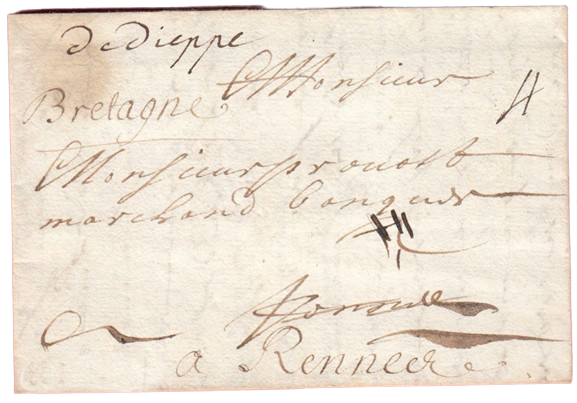 De dieppe
Monsieur
Bretagne
4
Monsieur prouost
marchand banquer
a Rennes